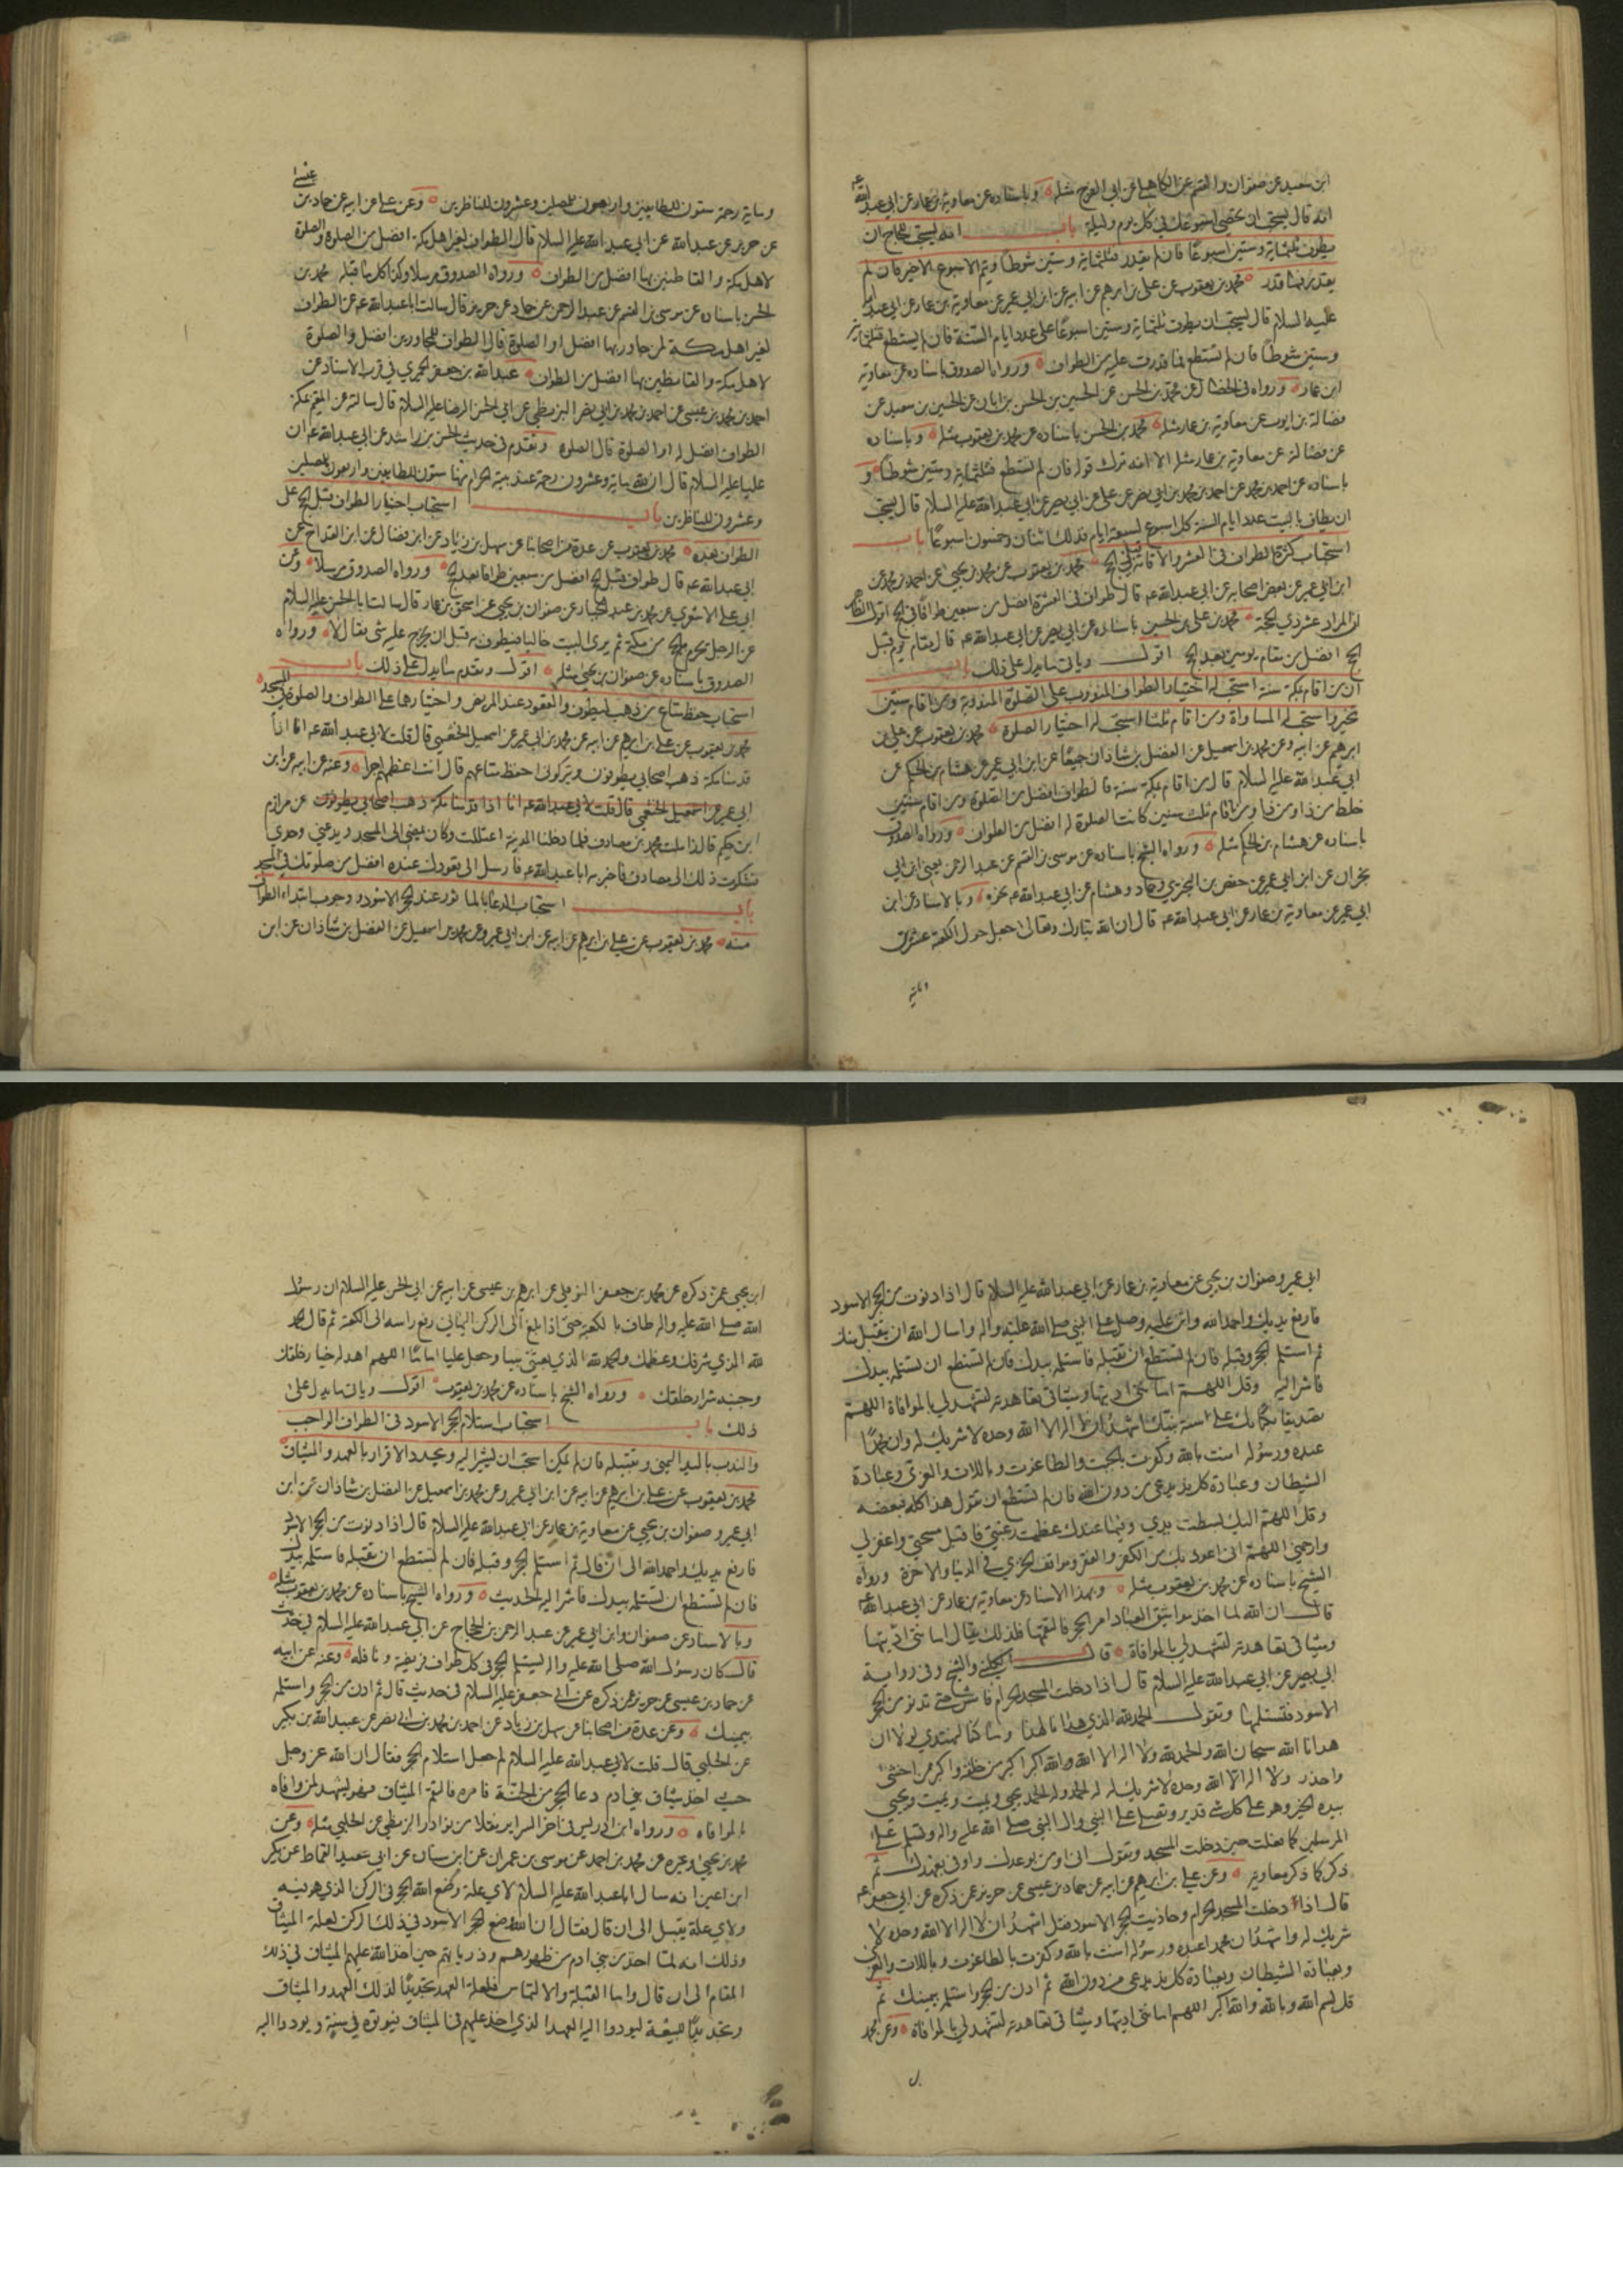 ابن سعيد عن صفوان والقسم عن الكاهلي عن ابي الفرج مثله وباسناده عن معاوية بن عمار عن ابي عبد الله عه
انه قال يستحب ان تحصي اسبوعك في كل يوم وليلة باب انه يستحب للحاج ان
يطوف ثلثماية وستين اسبوعًا فان لم يقدر فثلثماية وستين شوطًا ويتم الاسبوع الاخير فان لم
يقدر فما قدر محمد بن يعقوب عن علي بن ابرهيم عن ابيه عن ابن ابي عمير عن معاوية بن عمار عن ابي عبد الله
عليه السلام قال يستحب ان يطوف ثلثماية وستين اسبوعًا على عدد ايام السنة فان لم يستطع فثلثماية
وستين شوطًا فان لم تستطع فما قدرت عليه من الطواف ورواه الصدوق باسناده عن معاوية
ابن عمار ورواه في الخصال عن محمد بن الحسن عن الحسين بن الحسن بن ابان عن الحسين بن سعيد عن
فضالة بن ايوب عن معاوية بن عمار مثله محمد بن الحسن باسناده عن محمد بن يعقوب مثله وباسناده
عن فضالة عن معاوية بن عمار مثله الا انه ترك قوله فان لم تستطع فثلثماية وستين شوطًا و
باسناده عن احمد بن محمد عن احمد بن محمد بن ابي نصر عن علي عن ابي بصير عن ابي عبد الله عليه السلام قال يستحب
ان يطاف بالبيت عدد ايام السنة كل اسبوع لسبعة ايام فذلك اثنان وخمسون اسبوعًا باب
استحباب كثرة الطواف في العشر والاقامة قبل الحج محمد بن يعقوب عن محمد بن يحيى عن احمد بن محمد عن
ابن ابي عمير عن بعض اصحابه عن ابي عبد الله عه قال طواف في العشر افضل من سبعين طوافًا في الحج اقول الظاهر
ان المراد عشر ذي الحجة محمد بن علي بن الحسين باسناده عن ابي بصير عن ابي عبد الله عه قال مقام يوم قبل
الحج افضل من مقام يومين بعد الحج اقول وياتي ما يدل على ذلك باب
ان من اقام بمكة سنة استحب له اختيار الطواف المندوب على الصلوة المندوبة ومن اقام سنتين
تخير واستحب له المساواة ومن اقام ثلثا استحب له اختيار الصلوة محمد بن يعقوب عن علي بن
ابرهيم عن ابيه وعن محمد بن اسمعيل عن الفضل بن شاذان جميعًا عن ابن ابي عمير عن هشام بن الحكم عن
ابي عبد الله عليه السلام قال من اقام بمكة سنة فالطواف افضل من الصلوة ومن اقام سنتين
خلط من ذا ومن ذا ومن اقام ثلث سنين كانت الصلوة له افضل من الطواف ورواه الصدوق
باسناده عن هشام بن الحكم مثله ورواه الشيخ باسناده عن موسى بن القسم عن عبد الرحمن يعني ابن ابي
نجران عن ابن ابي عمير عن حفص بن البختري وحماد وهشام عن ابي عبد الله عه نحوه وبالاسناد عن ابن
ابي عمير عن معاوية بن عمار عن ابي عبد الله عه قال ان الله تبارك وتعالى جعل حول الكعبة عشرين
وماية رحمة ستون للطايفين واربعون للمصلين وعشرون للناظرين وعن علي عن ابيه عن حماد بن
عن حريز عن عبد الله عن ابي عبد الله عليه السلام قال الطواف لغير اهل مكة افضل من الصلوة والصلوة
لاهل مكة والقاطنين بها افضل من الطواف ورواه الصدوق مرسلا وكذا كل ما قبله محمد بن
الحسن باسناده عن موسى بن القسم عن عبد الرحمن عن حماد عن حريز قال سالت ابا عبد الله عه عن الطواف
لغير اهل مكة لمن جاور بها افضل او الصلوة قال الطواف للمجاورين افضل والصلوة
لاهل مكة والقاطنين بها افضل من الطواف عبد الله بن جعفر الحميري في قرب الاسناد عن
احمد بن محمد بن عيسى عن احمد بن محمد بن ابي نصر البزنطي عن ابي الحسن الرضا عليه السلام قال سالته عن المقيم بمكة
الطواف افضل له او الصلوة قال الصلوة وتقدم في حديث الحسن بن راشد عن ابي عبد الله عه ان
عليا عليه السلام قال ان لله ماية وعشرون رحمة عند بيته الحرام منها ستون للطايفين واربعون للمصلين
وعشرون للناظرين باب استحباب اختيار الطواف قبل الحج على
الطواف بعده محمد بن يعقوب عن عدة من اصحابنا عن سهل بن زياد عن ابن فضال عن ابن القداح عن
ابي عبد الله عه قال طواف قبل الحج افضل من سبعين طوافا بعد الحج ورواه الصدوق مرسلا وعن
ابي علي الاشعري عن محمد بن عبد الجبار عن صفوان بن يحيى عن اسحق بن عمار قال سالت ابا الحسن عليه السلام
عن الرجل يحرم بالحج من مكة ثم يرى البيت خاليا فيطوف به قبل ان يخرج عليه شي فقال لا ورواه
الصدوق باسناده عن صفوان بن يحيى مثله اقول وتقدم ما يدل على ذلك باب
استحباب حفظ متاع من ذهب ليطوف والقعود عند المريض واختيارهما على الطواف والصلوة في المسجد
محمد بن يعقوب عن علي بن ابرهيم عن ابيه عن محمد بن ابي عمير عن اسمعيل الخثعمي قال قلت لابي عبد الله عه انا اذا
قدمنا مكة ذهب اصحابي يطوفون ويتركوني احفظ متاعهم قال انت اعظمهم اجرا وعنه عن ابيه عن ابن
ابي عمير عن اسمعيل الخثعمي قال قلت لابي عبد الله عه انا اذا قدمنا مكة ذهب اصحابي يطوفون عن مرازم
ابن حكيم قال زاملت محمد بن مصادف فلما دخلنا المدينة اعتللت وكان يمضي الى المسجد ويدعني وحدي
فشكوت ذلك الى مصادف فاخبر به ابا عبد الله عه فارسل الى قعودك عنده افضل من صلوتك في المسجد
باب استحباب الدعا بالماثور عند الحجر الاسود ووجوب ابتداء الطواف
منه محمد بن يعقوب عن علي بن ابرهيم عن ابيه عن ابن ابي عمير وعن محمد بن اسمعيل عن الفضل بن شاذان عن ابن
ابي عمير وصفوان بن يحيى عن معاوية بن عمار عن ابي عبد الله عليه السلام قال اذا دنوت من الحجر الاسود
فارفع يديك واحمد الله واثن عليه وصل على النبي صلى الله عليه واله واسال الله ان يتقبل منك
ثم استلم الحجر وقبله فان لم تستطع ان تقبله فاستلمه بيدك فان لم تستطع ان تستلمه بيدك
فاشر اليه وقل اللهم امانتي اديتها وميثاقي تعاهدته لتشهد لي بالموافاة اللهم
تصديقا بكتابك وعلى سنة نبيك اشهد ان لا اله الا الله وحده لا شريك له وان محمدًا
عبده ورسوله امنت بالله وكفرت بالجبت والطاغوت وباللات والعزى وعبادة
الشيطان وعبادة كل ند يدعى من دون الله فان لم تستطع ان تقول هذا كله فبعضه
وقل اللهم اليك بسطت يدي وفيما عندك عظمت رغبتي فاقبل مسحتي واغفر لي
وارحمني اللهم اني اعوذ بك من الكفر والفقر ومواقف الخزي في الدنيا والاخرة ورواه
الشيخ باسناده عن محمد بن يعقوب مثله وبهذا الاسناد عن معاوية بن عمار عن ابي عبد الله عه
قال ان الله لما اخذ مواثيق العباد امر الحجر فالتقمها فلذلك يقال امانتي اديتها
وميثاقي تعاهدته لتشهد لي بالموافاة قال الكليني والشيخ وفي رواية
ابي بصير عن ابي عبد الله عليه السلام قال اذا دخلت المسجد الحرام فامش حتى تدنو من الحجر
الاسود فتستلمه وتقول الحمد لله الذي هدانا لهذا وما كنا لنهتدي لولا ان
هدانا الله سبحان الله والحمد لله ولا اله الا الله والله اكبر اكبر من خلقه واكبر ممن اخشى
واحذر ولا اله الا الله وحده لا شريك له له الملك وله الحمد يحيي ويميت ويميت ويحيي
بيده الخير وهو على كل شي قدير وتصلي على النبي وال النبي صلى الله عليه واله وتسلم على
المرسلين كما فعلت حين دخلت المسجد وتقول اني اومن بوعدك واوفي بعهدك ثم
ذكر كما ذكر معاوية وعن علي بن ابرهيم عن ابيه عن حماد بن عيسى عن حريز عن ذكره عن ابي جعفر عه
قال اذا دخلت المسجد الحرام وحاذيت الحجر الاسود فقل اشهد ان لا اله الا الله وحده لا
شريك له واشهد ان محمدا عبده ورسوله امنت بالله وكفرت بالطاغوت وباللات والعزى
وبعبادة الشيطان وبعبادة كل ند يدعى من دون الله ثم ادن من الحجر واستلمه بيمينك ثم
قل بسم الله وبالله والله اكبر اللهم امانتي اديتها وميثاقي تعاهدته لتشهد لي بالموافاة وعن محمد
ابن يحيى عمن ذكره عن محمد بن جعفر النوفلي عن ابرهيم بن عيسى عن ابيه عن ابي الحسن عليه السلام ان رسول
الله صلى الله عليه واله طاف بالكعبة حتى اذا بلغ الى الركن اليماني رفع راسه الى الكعبة ثم قال الحمد
لله الذي شرفك وعظمك والحمد لله الذي بعثني نبيا وجعل عليا اماما اللهم اهد له خيار خلقك
وجنبه شرار خلقك ورواه الشيخ باسناده عن محمد بن يعقوب اقول وياتي ما يدل على
ذلك باب استحباب استلام الحجر الاسود في الطواف الواجب
والندب باليد اليمنى وتقبيله فان لم يمكن استحب ان يشير اليه ويجدد الاقرار بالعهد والميثاق
محمد بن يعقوب عن علي بن ابرهيم عن ابيه عن ابن ابي عمير وعن محمد بن اسمعيل عن الفضل بن شاذان عن ابن
ابي عمير وصفوان بن يحيى عن معاوية بن عمار عن ابي عبد الله عليه السلام قال اذا دنوت من الحجر الاسود
فارفع يديك واحمد الله الى ان قال ثم استلم الحجر وقبله فان لم تستطع ان تقبله فاستلمه بيدك
فان لم تستطع ان تستلمه بيدك فاشر اليه الحديث ورواه الشيخ باسناده عن محمد بن يعقوب مثله
وبالاسناد عن صفوان وابن ابي عمير عن عبد الرحمن بن الحجاج عن ابي عبد الله عليه السلام في حديث
قال كان رسول الله صلى الله عليه واله يستلم الحجر في كل طواف فريضة ونافلة وعنه عن ابيه
عن حماد بن عيسى عن حريز عمن ذكره عن ابي جعفر عليه السلام في حديث قال ثم ادن من الحجر واستلمه
بيمينك وعن عدة من اصحابنا عن سهل بن زياد عن احمد بن محمد بن ابي نصر عن عبد الله بن بكير
عن الحلبي قال قلت لابي عبد الله عليه السلام لم جعل استلام الحجر فقال ان الله عز وجل
حيث اخذ ميثاق بني ادم دعا الحجر من الجنة فامره فالتقم الميثاق فهو يشهد لمن وافاه
بالموافاة ورواه ابن ادريس في اخر السراير نقلا من نوادر البزنطي عن الحلبي مثله وعن
محمد بن يحيى وغيره عن محمد بن احمد عن موسى بن عمران عن ابن سنان عن ابي سعيد القماط عن بكير
ابن اعين انه سال ابا عبد الله عليه السلام لاي علة وضع الله الحجر في الركن الذي هو فيه
ولاي علة يقبل الى ان قال فقال ان الله وضع الحجر الاسود في ذلك الركن لعلة الميثاق
وذلك انه لما اخذ من بني ادم من ظهورهم وذرياتهم حين اخذ الله عليهم الميثاق في ذلك
المقام الى ان قال واما القبلة والالتماس فلعلة العهد تجديدًا لذلك العهد والميثاق
وتجديدًا للبيعة ليودوا اليه العهد الذي اخذ عليهم في الميثاق فيوتوه في سنة ويودوا اليه